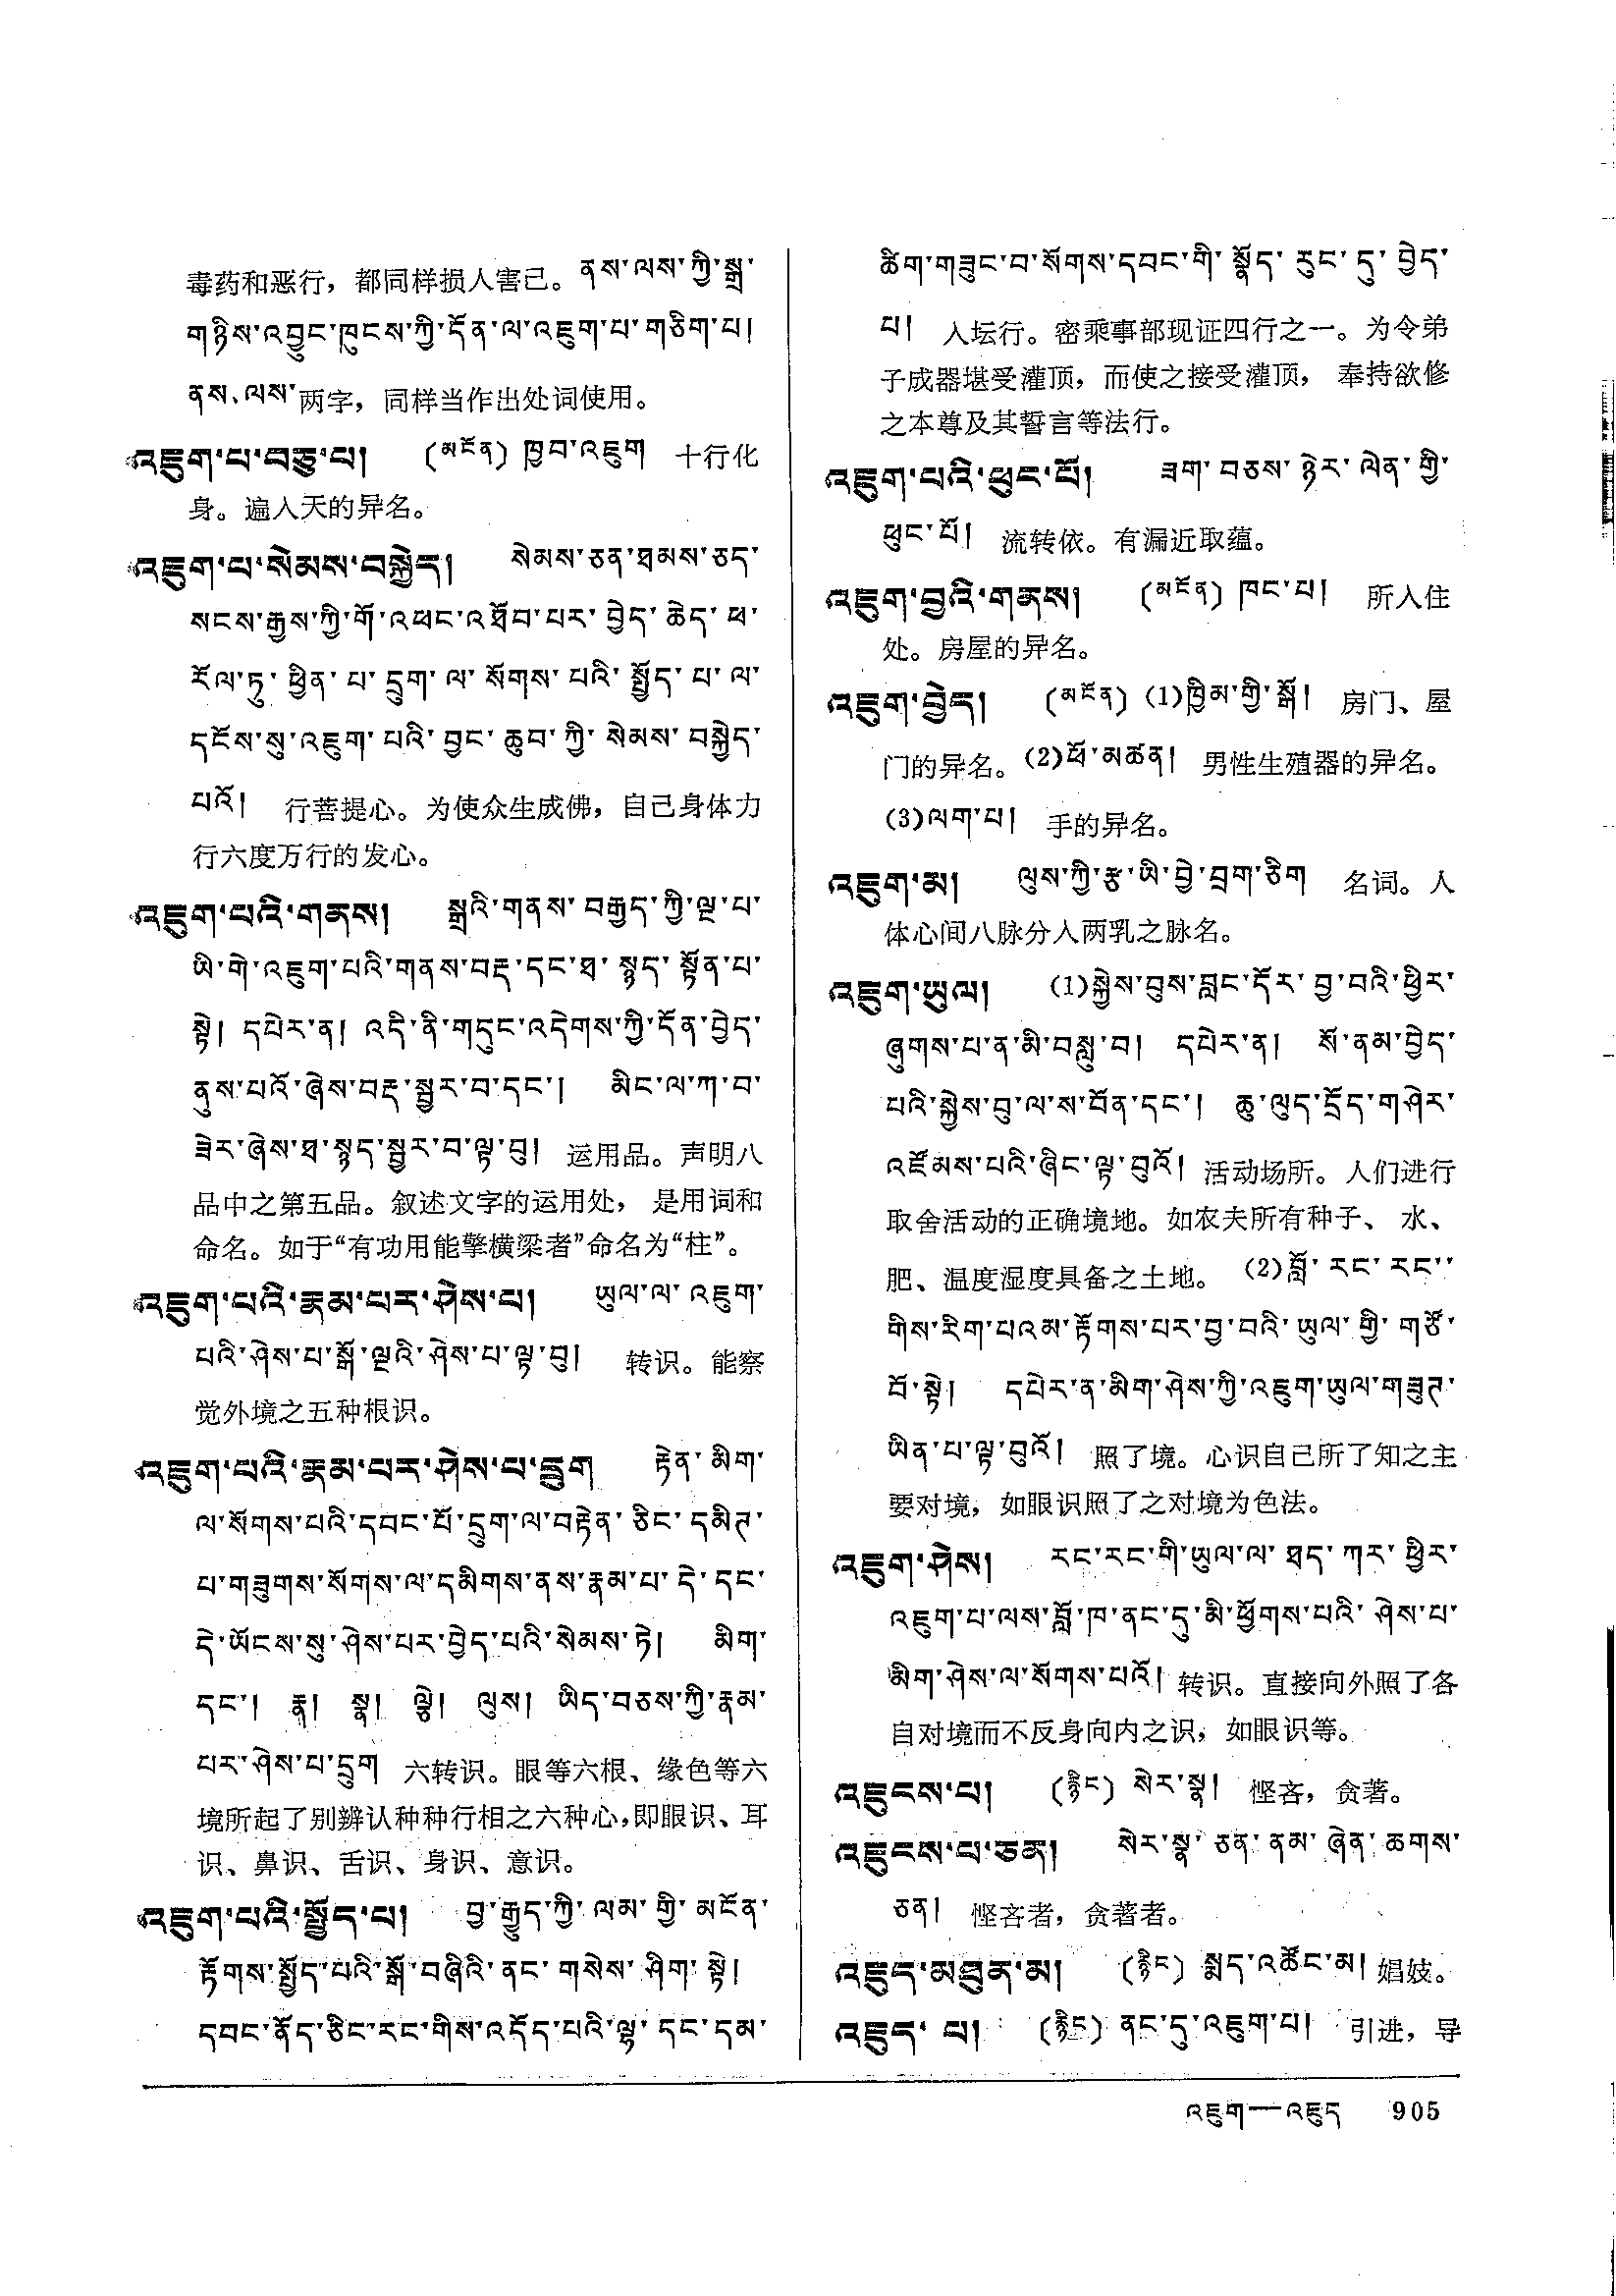 毒药和恶行，都同样损人害己。ནས་ལས་ཀྱི་སྒྲ་
གཉིས་འབྱུང་ཁུངས་ཀྱི་དོན་ལ་འཇུག་པ་གཅིག་པ།
ནས、ལས་两字，同样当作出处词使用。
འཇུག་པ་བཅུ་པ། (མངོན) ཁྱབ་འཇུག 十行化
身。遍入天的异名。
འཇུག་པ་སེམས་བསྐྱེད། སེམས་ཅན་ཐམས་ཅད་
སངས་རྒྱས་ཀྱི་གོ་འཕང་འཐོབ་པར་བྱེད་ཆེད་ཕ་
རོལ་ཏུ་ཕྱིན་པ་དྲུག་ལ་སོགས་པའི་སྤྱོད་པ་ལ་
དངོས་སུ་འཇུག་པའི་བྱང་ཆུབ་ཀྱི་སེམས་བསྐྱེད་
པའོ། 行菩提心。为使众生成佛，自己身体力
行六度万行的发心。
འཇུག་པའི་གནས། སྒྲའི་གནས་བརྒྱད་ཀྱི་ལྔ་པ་
ཡི་གེ་འཇུག་པའི་གནས་བརྡ་དང་ཐ་སྙད་སྟོན་པ་
སྟེ། དཔེར་ན། འདི་ནི་གདུང་འདེགས་ཀྱི་དོན་བྱེད་
ནུས་པའོ་ཞེས་བརྡ་སྦྱར་བ་དང་། མིང་ལ་ཀ་བ་
ཟེར་ཞེས་ཐ་སྙད་སྦྱར་བ་ལྟ་བུ། 运用品。声明八
品中之第五品。叙述文字的运用处， 是用词和
命名。如于“有功用能擎横梁者”命名为“柱”。
འཇུག་པའི་རྣམ་པར་ཤེས་པ། ཡུལ་ལ་འཇུག་
པའི་ཤེས་པ་སྒོ་ལྔའི་ཤེས་པ་ལྟ་བུ། 转识。能察
觉外境之五种根识。
འཇུག་པའི་རྣམ་པར་ཤེས་པ་དྲུག རྟེན་མིག་
ལ་སོགས་པའི་དབང་པོ་དྲུག་ལ་བརྟེན་ཅིང་དམིཊ་
པ་གཟུགས་སོགས་ལ་དམིགས་ནས་རྣམ་པ་དེ་དང་
དེ་ཡོངས་སུ་ཤེས་པར་བྱེད་པའི་སེམས་ཏེ། མིག་
དང་། རྣ། སྣ། ལྕེ། ལུས། ཡིད་བཅས་ཀྱི་རྣམ་
པར་ཤེས་པ་དྲུག 六转识。眼等六根、缘色等六
境所起了别辨认种种行相之六种心，即眼识、耳
识、鼻识、舌识、身识、意识。
འཇུག་པའི་སྤྱོད་པ། བྱ་རྒྱུད་ཀྱི་ལམ་གྱི་མངོན་
རྟོགས་སྤྱོད་པའི་སྒོ་བཞིའི་ནང་གསེས་ཤིག་སྟེ།
དབང་ནོད་ཅིང་རང་གིས་འདོད་པའི་ལྷ་དང་དམ་
ཚིག་གཟུང་བ་སོགས་དབང་གི་སྣོད་རུང་དུ་བྱེད་
པ། 入坛行。密乘事部现证四行之一。为令弟
子成器堪受灌顶，而使之接受灌顶， 奉持欲修
之本尊及其誓言等法行。
འཇུག་པའི་ཕུང་པོ། ཟག་བཅས་ཉེར་ལེན་གྱི་
ཕུང་པོ། 流转依。有漏近取蕴。
འཇུག་བྱའི་གནས། (མངོན) ཁང་པ། 所入住
处。房屋的异名。
འཇུག་བྱེད། (མངོན) (1)ཁྱིམ་གྱི་སྒོ། 房门、屋
门的异名。(2)ཕོ་མཚན། 男性生殖器的异名。
(3)ལག་པ། 手的异名。
འཇུག་མ། ལུས་ཀྱི་རྩ་ཡི་བྱེ་བྲག་ཅིག 名词。人
体心间八脉分入两乳之脉名。
འཇུག་ཡུལ། (1)སྐྱེས་བུས་བླང་དོར་བྱ་བའི་ཕྱིར་
ཞུགས་པ་ན་མི་བསླུ་བ། དཔེར་ན། སོ་ནམ་བྱེད་
པའི་སྐྱེས་བུ་ལ་ས་བོན་དང་། ཆུ་ལུད་དྲོད་གཤེར་
འཛོམས་པའི་ཞིང་ལྟ་བུའོ། 活动场所。人们进行
取舍活动的正确境地。如农夫所有种子、 水、
肥、温度湿度具备之土地。 (2)བློ་རང་རང་་
གིས་རིག་པའམ་རྟོགས་པར་བྱ་བའི་ཡུལ་གྱི་གཙོ་
བོ་སྟེ། དཔེར་ན་མིག་ཤེས་ཀྱི་འཇུག་ཡུལ་གཟུཊ་
ཡིན་པ་ལྟ་བུའོ། 照了境。心识自己所了知之主
要对境，如眼识照了之对境为色法。
འཇུག་ཤེས། རང་རང་གི་ཡུལ་ལ་ཐད་ཀར་ཕྱིར་
འཇུག་པ་ལས་བློ་ཁ་ནང་དུ་མི་ཕྱོགས་པའི་ཤེས་པ་
མིག་ཤེས་ལ་སོགས་པའོ། 转识。直接向外照了各
自对境而不反身向内之识，如眼识等。
འཇུངས་པ། (རྙིང) སེར་སྣ། 悭吝，贪著。
འཇུངས་པ་ཅན། སེར་སྣ་ཅན་ནམ་ཞེན་ཆགས་
ཅན། 悭吝者，贪著者。
འཇུད་མཐུན་མ། (རྙིང) སྨད་འཚོང་མ། 娼妓。
འཇུད་པ། (རྙིང) ནང་དུ་འཇུག་པ། 引进，导
འཇུག—འཇུད 905